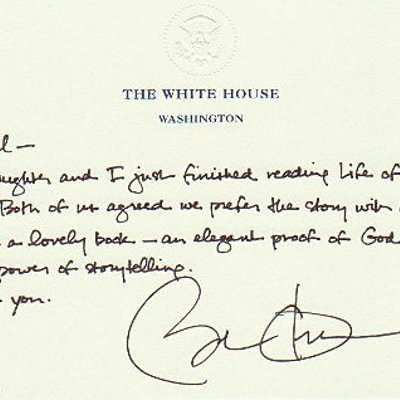 THE WHITE HOUSE
WASHINGTON
l —
ughter and I just finished reading Life of
Both of us agreed we prefer the story with
a lovely book — an elegant proof of God
power of storytelling.
you.